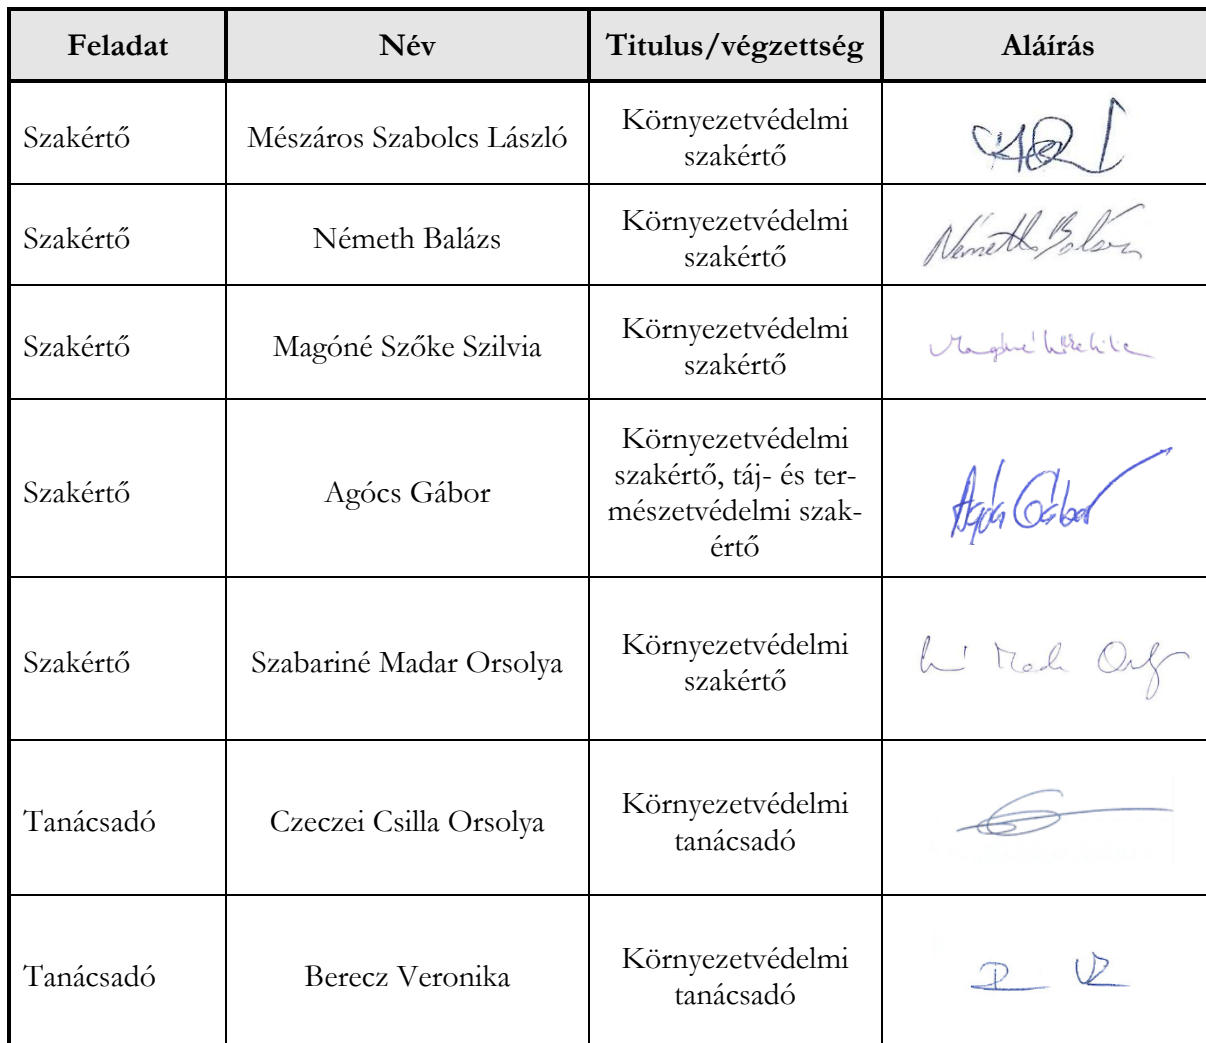 Feladat Név Titulus/végzettség Aláírás
Szakértő Mészáros Szabolcs László Környezetvédelmi
szakértő
Szakértő Németh Balázs Környezetvédelmi
szakértő Németh Balázs
Szakértő Magóné Szőke Szilvia Környezetvédelmi
szakértő
Szakértő Agócs Gábor Környezetvédelmi
szakértő, táj- és ter-
mészetvédelmi szak-
értő Agócs Gábor
Szakértő Szabariné Madar Orsolya Környezetvédelmi
szakértő
Tanácsadó Czeczei Csilla Orsolya Környezetvédelmi
tanácsadó
Tanácsadó Berecz Veronika Környezetvédelmi
tanácsadó